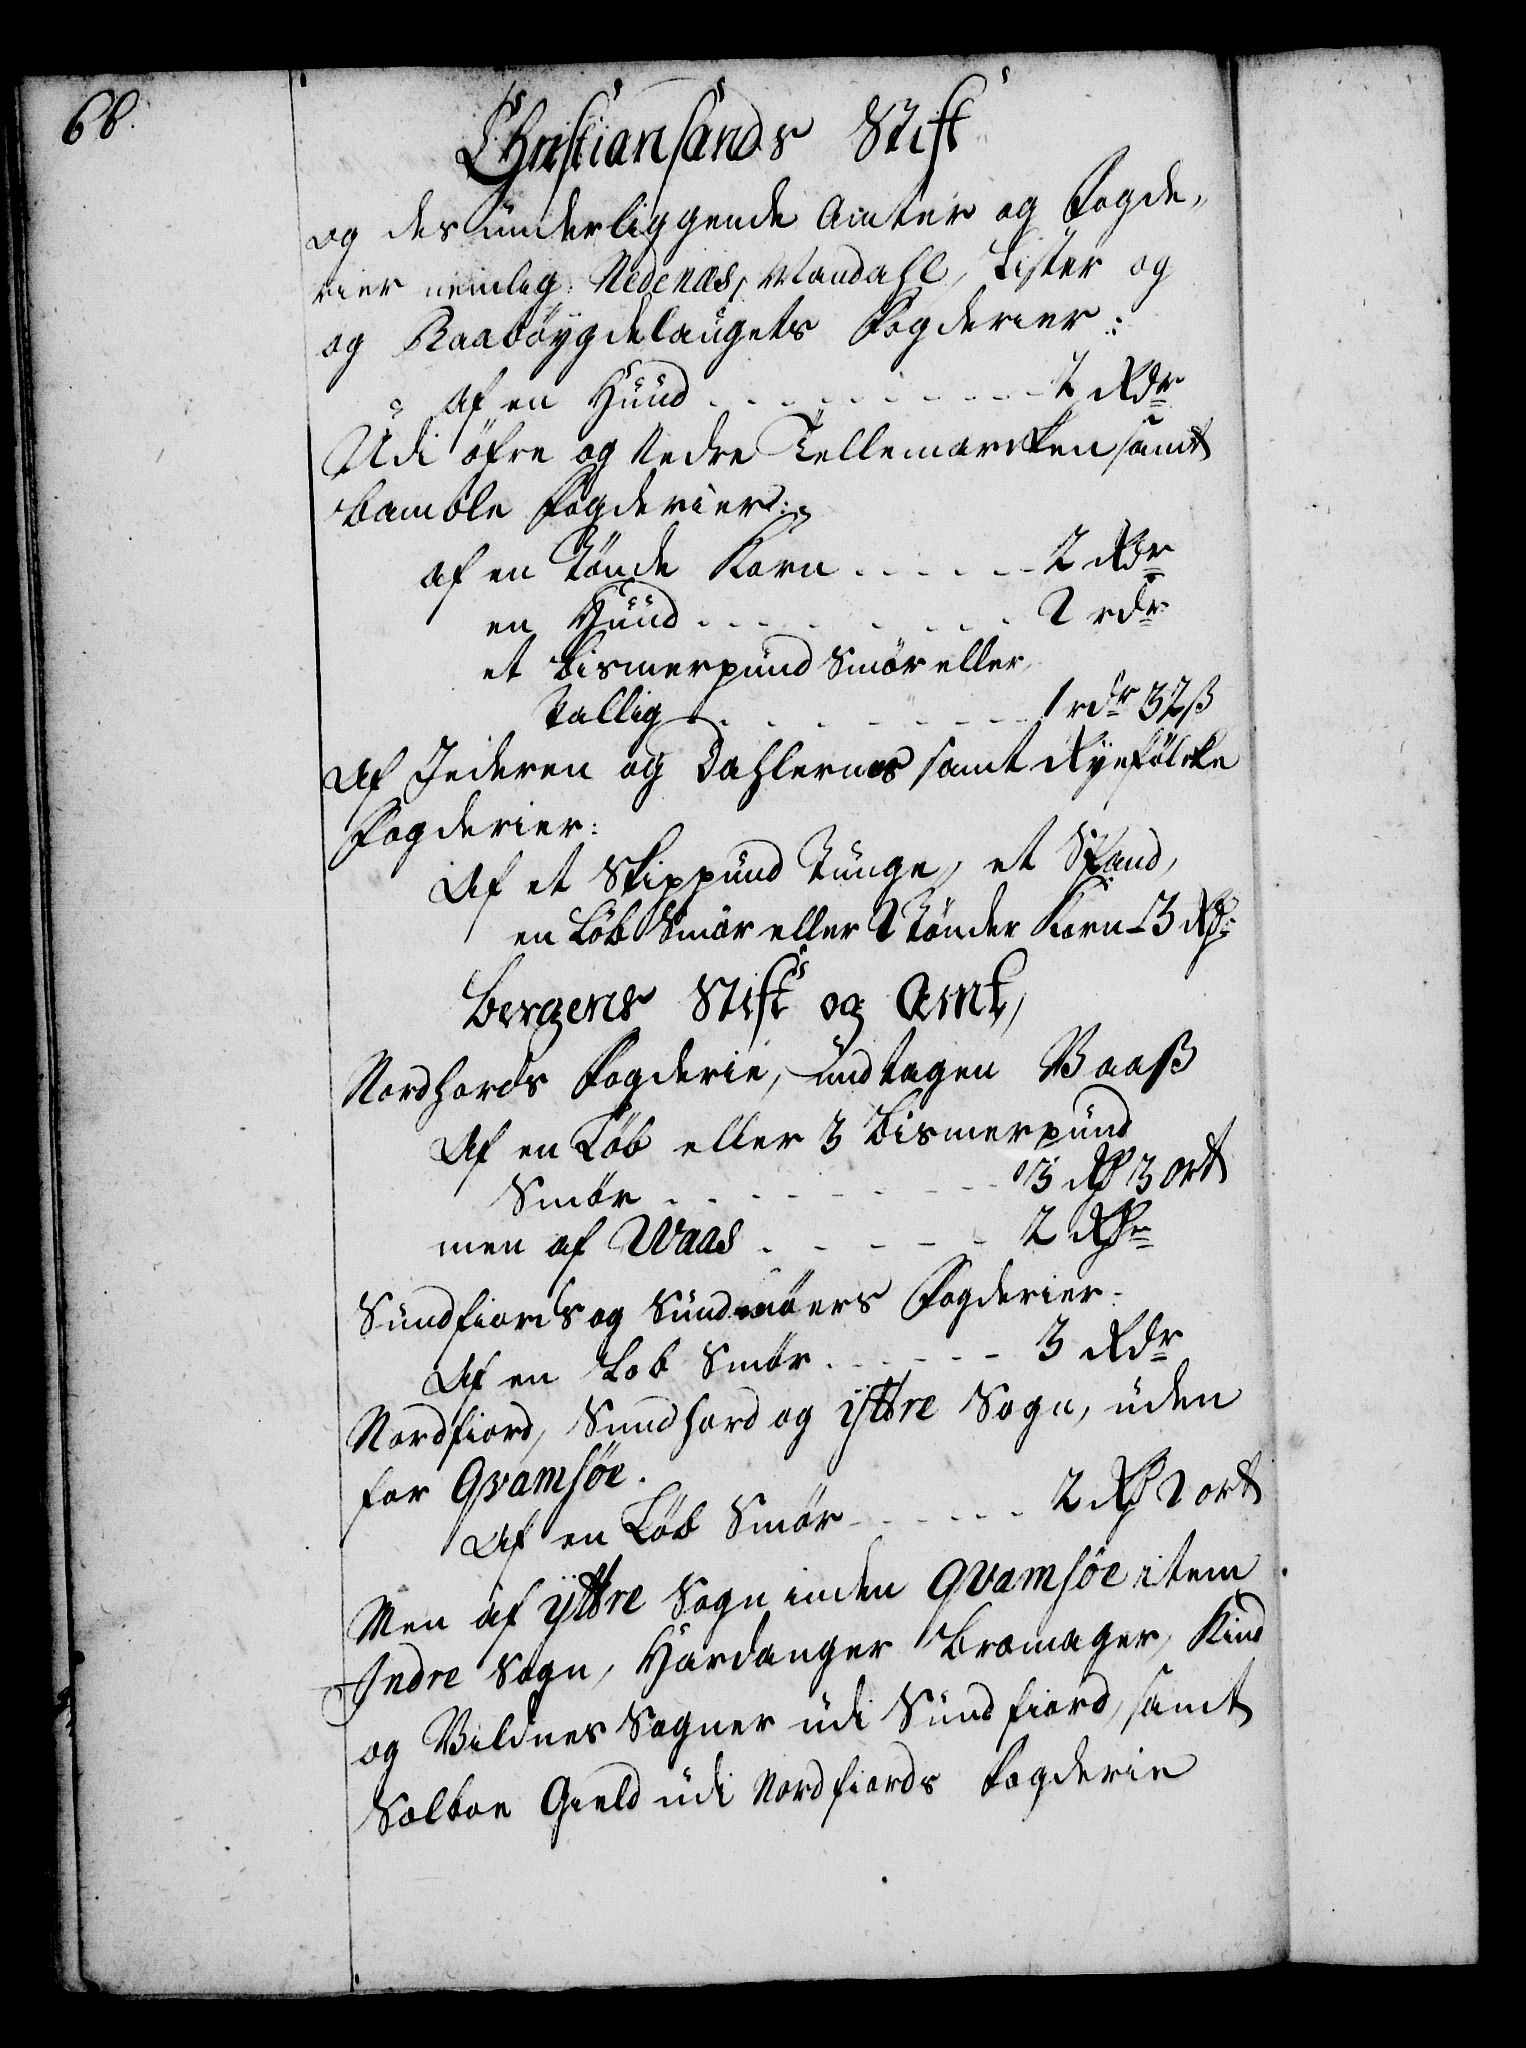 68.
Christiansands Stift
og des underliggende Amter og Fogde-
rier nemlig: Nedenæs, Mandahl, Lister og
og Raabøygdelaugets Fogderier:
af en Huud . . . . . . . . . 2 Rdr
Udi öfre og Nedre Tellemarcken samt
bamble Fogderier:
af en Tønde Korn . . . . . 2 Rdr
en Huud . . . . . . . . 2 rdr
et bismerpund Smør eller
Tallig . . . . . . . . 1 rdr 32 ß
Af Jederen og Dahlernes samt Ryefölcke
Fogderier:
Af et Skippund Tunge, et Spand,
en Løb Smør eller 2 Tønder Korn 3 Rdr:
Bergens Stift og Amt,
Nordhords Fogderie, undtagen Vaaß
Af en Løb eller 3 bismerpund
Smør . . . . . . . . 3 Rdr 3 ort
men af Waas . . . . . 2 Rdr
Sundfiords og Sundmöers Fogderier:
Af en Løb Smør . . . . . 3 Rdr
Nordfiord, Sundhord og ÿttre Sogn, uden
for Qvamsøe.
Af en Løb Smør . . . . . 2 Rdr 2 ort
Men af ÿttre Sogn inden Qvamsøe item
Indre Sogn, Hardanger Bremager, Kind
og Vildnes Sogner udi Sundfiord, samt
Selboe Gield udi Nordfiords Fogderie